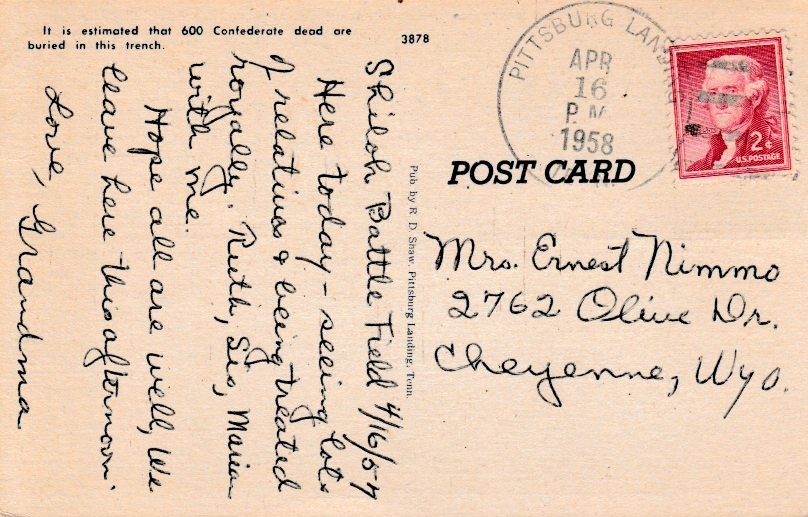 It is estimated that 600 Confederate dead are
buried in this trench.
3878
Shiloh Battle Field 4/16/57
Here today - seeing lots
of relatives & being treated
royally. Ruth, Sis, Marian
with me.
Hope all are well, We
leave here this afternoon.
Love, Grandma
Pub. by R. D. Shaw, Pittsburg Landing, Tenn.
PITTSBURG LANDING
APR
16
P M
1958
2¢
U.S. POSTAGE
POST CARD
Mrs. Ernest Nimmo
2762 Olive Dr.
Cheyenne, Wyo.